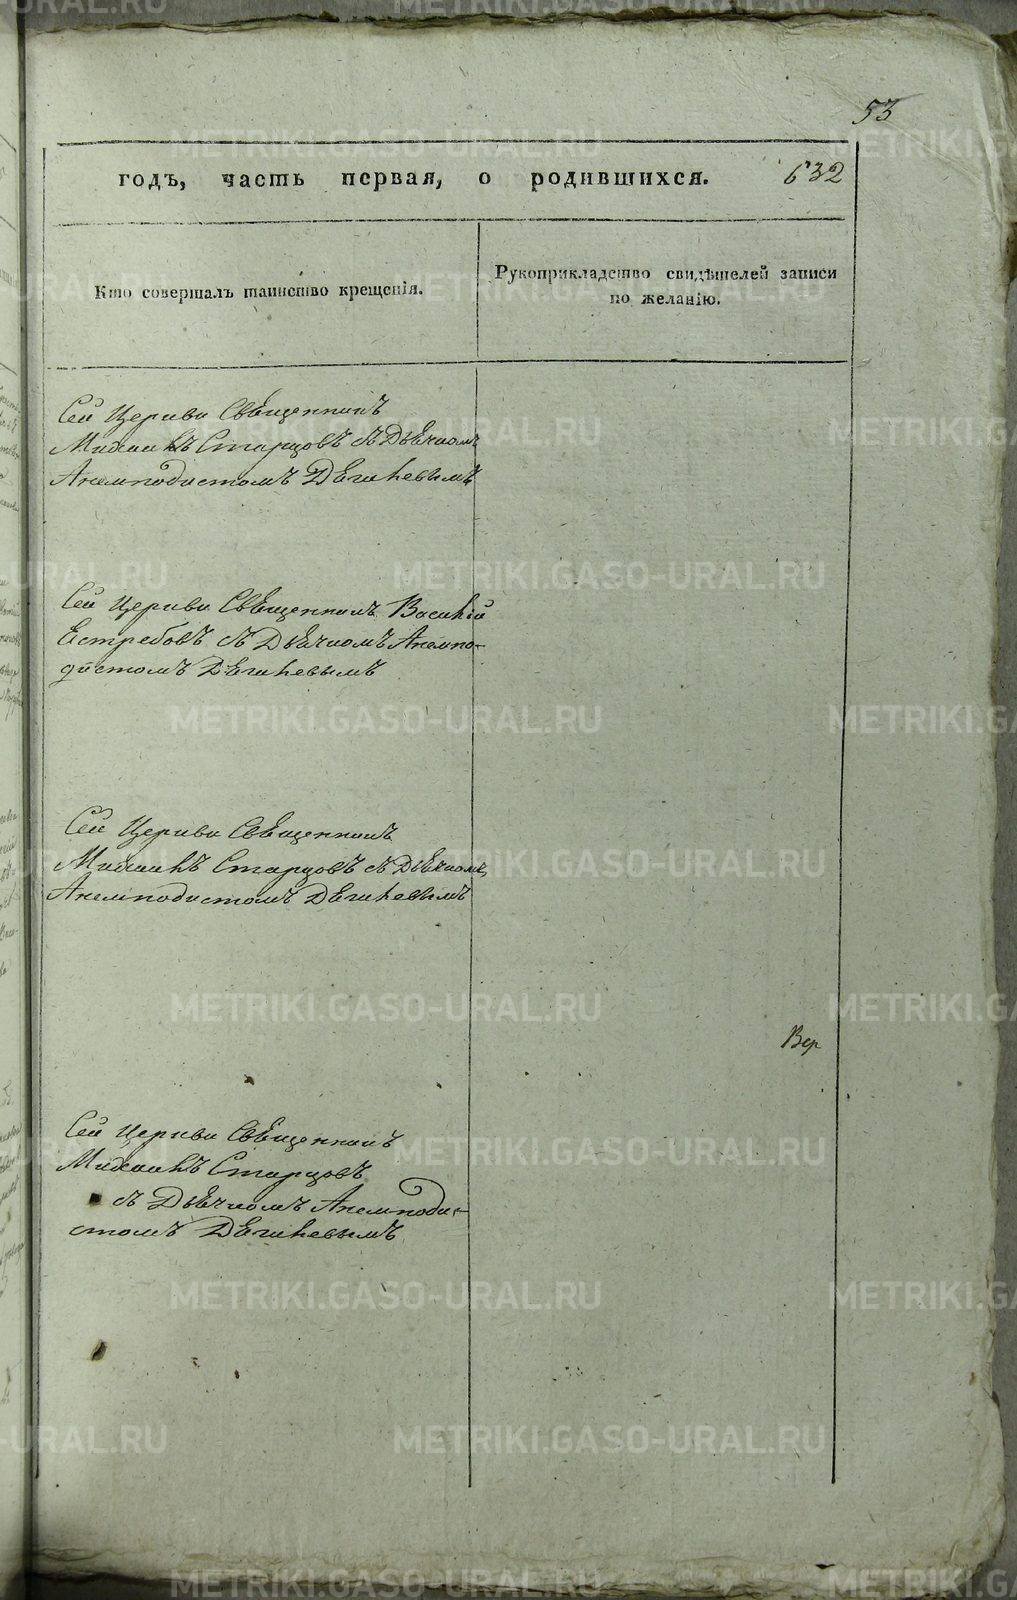 53
годъ, часть первая, о родившихся. 632
Кто совершалъ таинство крещенія.
Рукоприкладство свидѣтелей записи
по желанію.
Сей Церкви Свѣщенникъ
Михаилъ Старцовъ съ Дьячкомъ
Анемподистомъ Дѣгилевымъ
Сей Церкви Свѣщенникъ Василій
Естребовъ съ Дьячкомъ Анемпо-
дистомъ Дѣгилевымъ
Сей Церкви Свѣщенникъ
Михаилъ Старцовъ съ Дьячкомъ
Анемподистомъ Дѣгилевымъ
Вер
Сей Церкви Свѣщенникъ
Михаилъ Старцовъ
съ Дьячкомъ Анемподи-
стомъ Дѣгилевымъ
METRIKI.GASO-URAL.RU